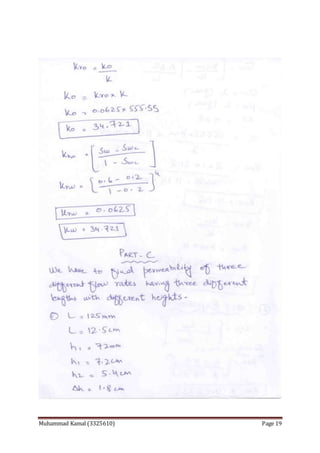 Kro = ko
K
Ko = Kro x K
Ko = 0.0625 x 555.55
ko = 34.721
Krw = [ Sw - Swc
1 - Swc ]
Krw = [ 0.6 - 0.2
1 - 0.2 ]4
Krw = 0.0625
Kw = 34.721
PART - C
We have to find permeability of three
different flow rates having three different
lengths with different heights -
① L = 125mm
L = 12.5cm
h1 = 72mm
h1 = 7.2cm
h2 = 5.4cm
Δh = 1.8cm
Muhammad Kamal (3325610) Page 19